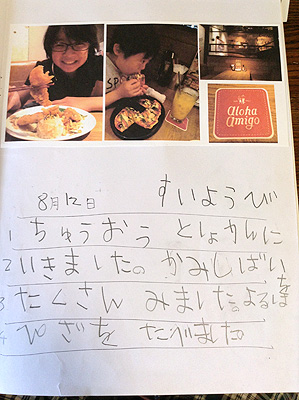 aloha
amigo
8月12日 すいようび
1 ちゅうおう としょかんに
2 いきました。かみしばいを
3 たくさん みました。よるは
4 ぴざを たべました